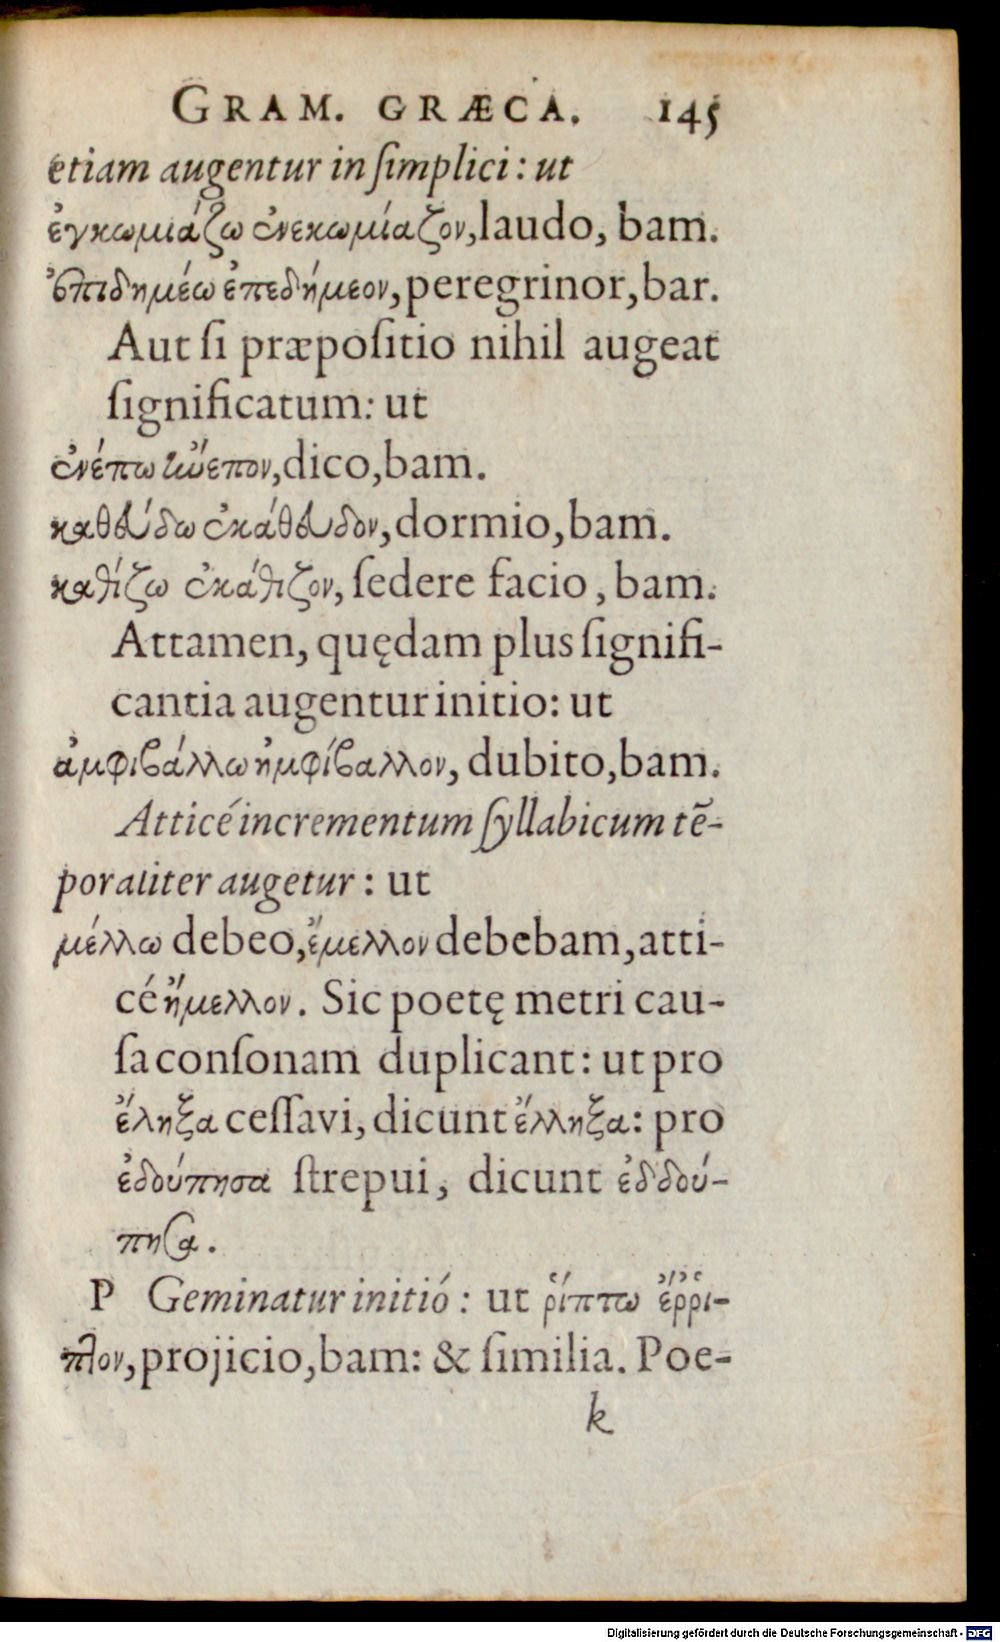 GRAM. GRÆCA. 145
etiam augentur in ſimplici: ut
ἐγκωμιάζω ἐνεκωμίαζον, laudo, bam.
ἐπιδημέω ἐπεδήμεον, peregrinor, bar.
Aut ſi præpoſitio nihil augeat
ſignificatum: ut
ἐνέπω ἤνεπον, dico, bam.
καθεύδω ἐκάθευδον, dormio, bam.
καθίζω ἐκάθιζον, ſedere facio, bam.
Attamen, quędam plus ſignifi-
cantia augentur initio: ut
ἀμφιβάλλω ἠμφίβαλλον, dubito, bam.
Atticé incrementum ſyllabicum tē-
poraliter augetur: ut
μέλλω debeo, ἔμελλον debebam, atti-
cé ἤμελλον. Sic poetę metri cau-
ſa conſonam duplicant: ut pro
ἔληξα ceſſavi, dicunt ἔλληξα: pro
ἐδούπησα ſtrepui, dicunt ἐδδού-
πησα.
Ρ Geminatur initió: ut ῥίπτω ἔῤῥι-
πτον, projicio, bam: & ſimilia. Poe-
k
Digitalisierung gefördert durch die Deutsche Forschungsgemeinschaft - DFG